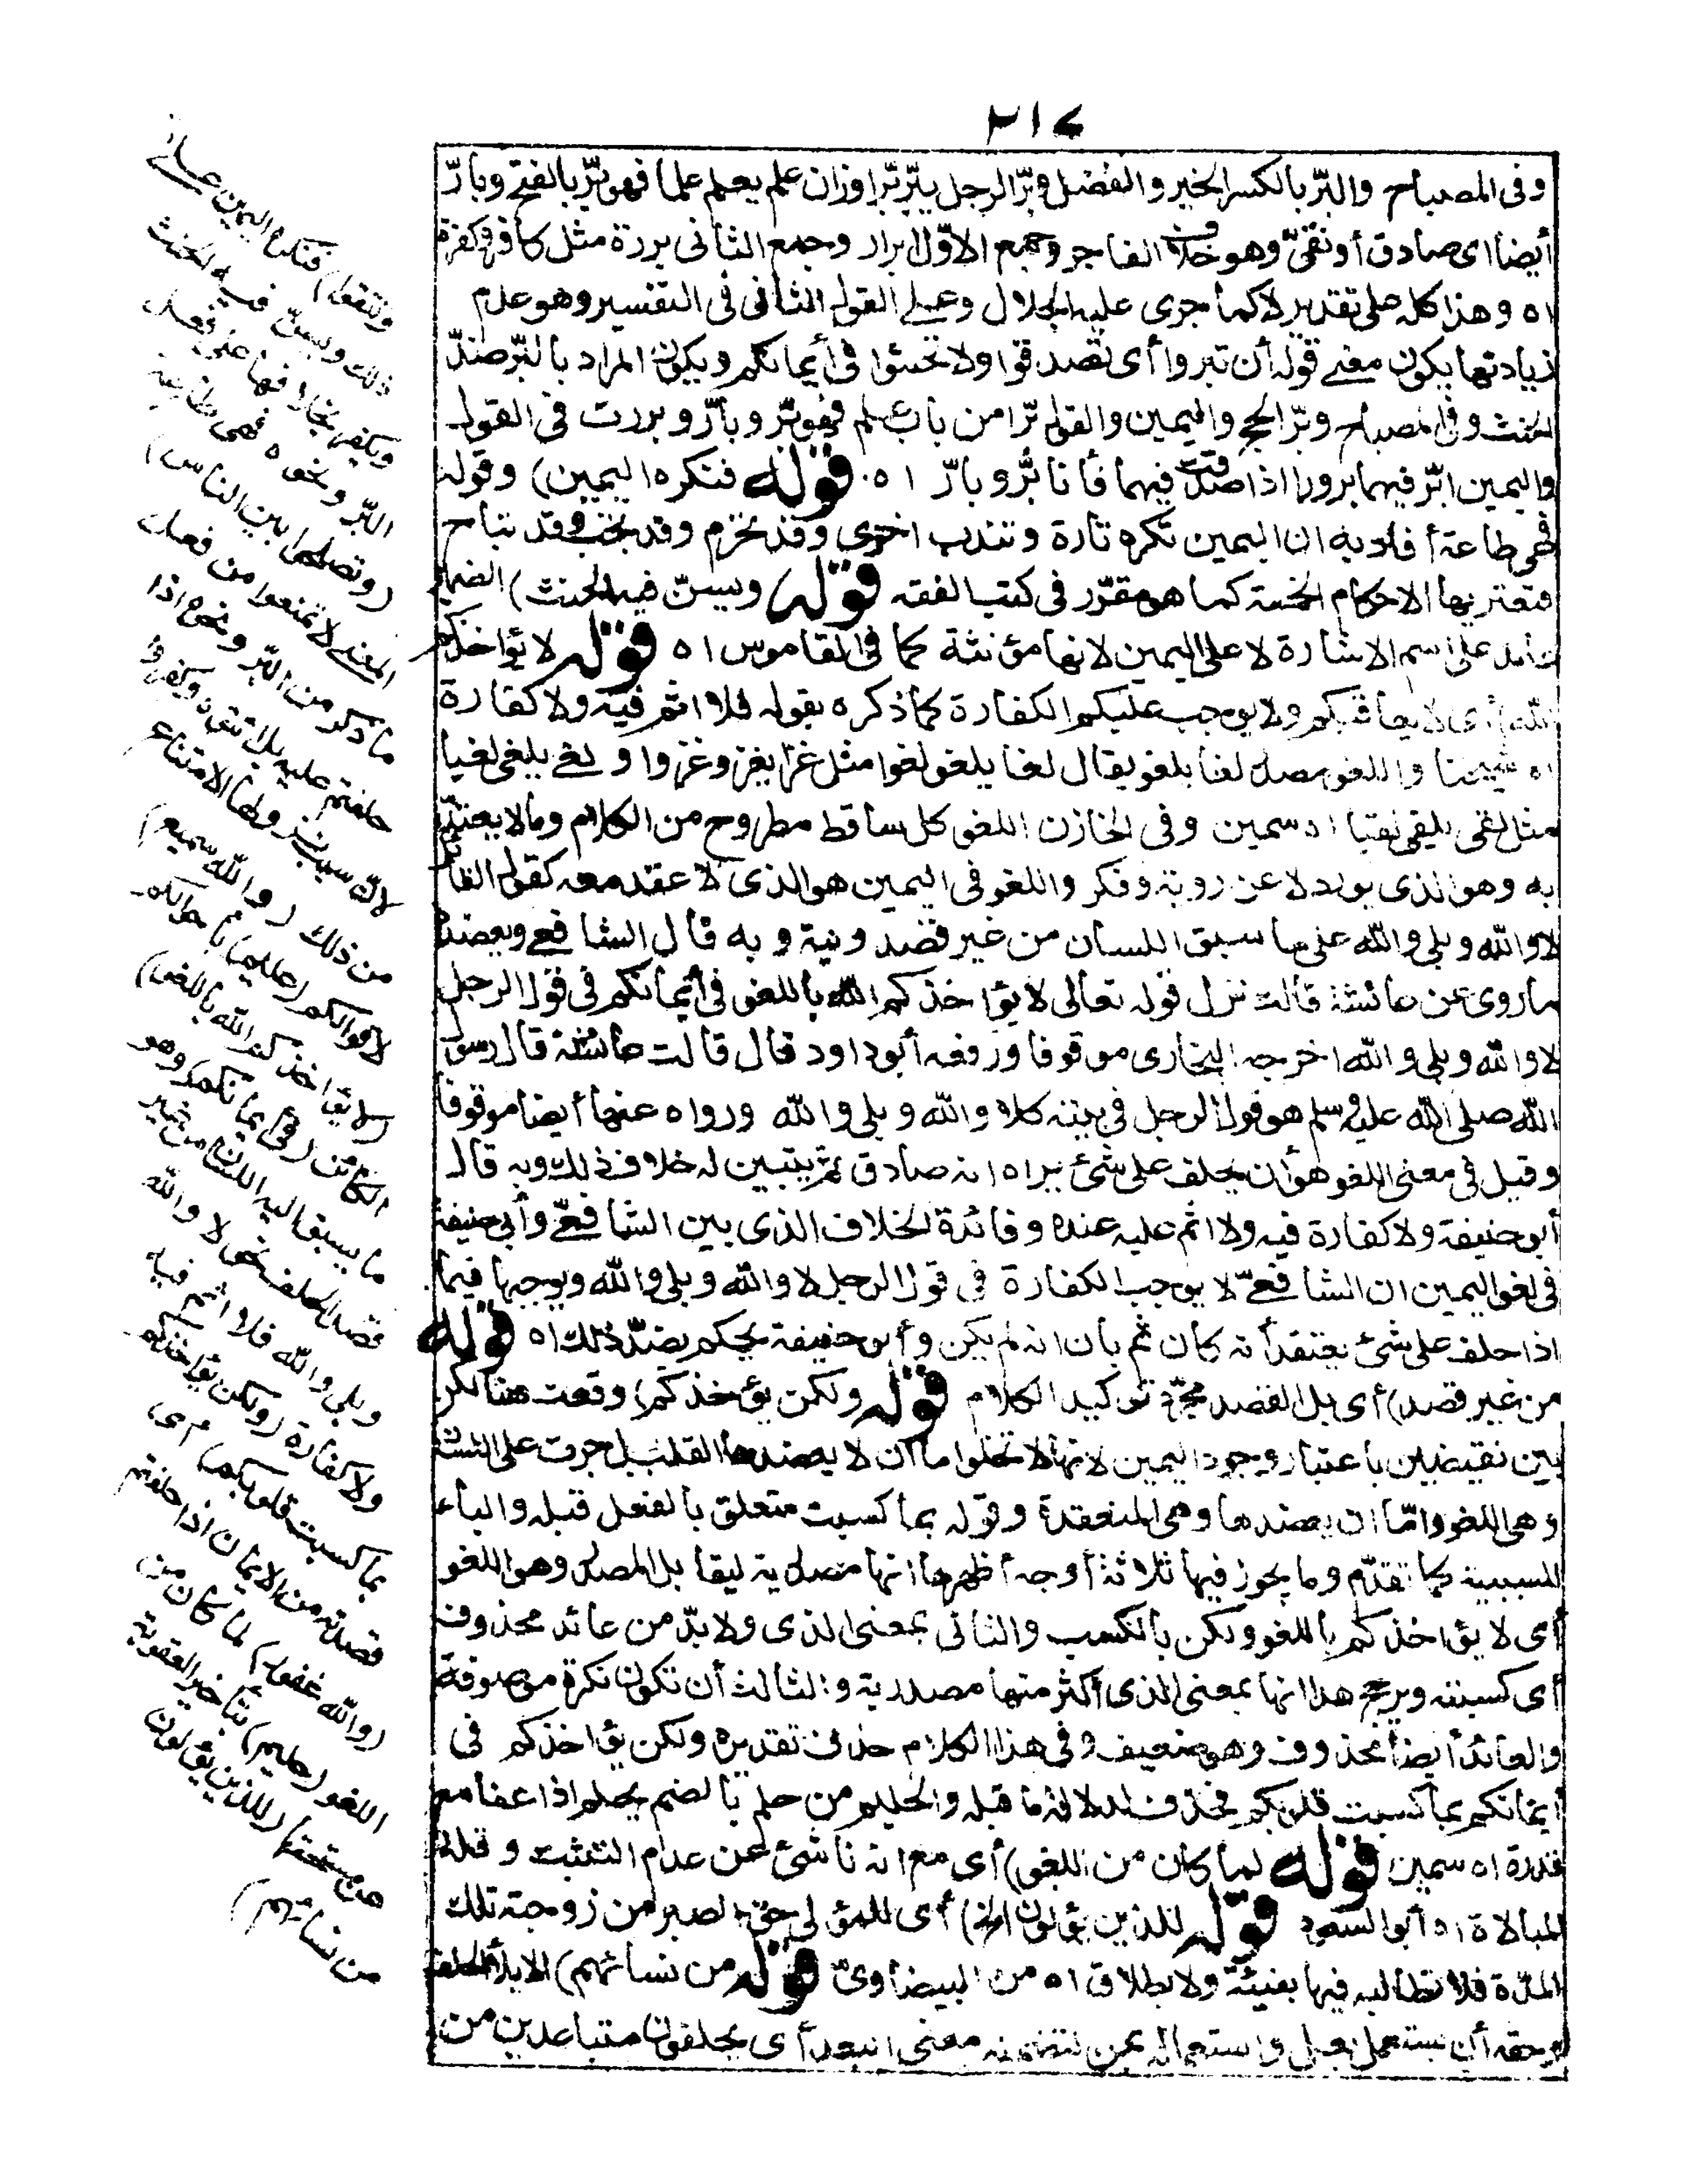 ٢١٧
وفى المصباح والبرّ بالكسر الخير والفضل وبرّ الرجل يبرّ برّا وزان علم يعلم علما فهو برّ بالفتح وبارّ
أيضا اى صادق أو تقىّ وهو خلاف الفاجر وجمع الاوّل ابرار وجمع الثانى بررة مثل كافر وكفرة
اه وهذا كله على تقدير لا كما جرى عليه الجلال وعلى القول الثانى فى التفسير وهو عدم
زيادتها يكون معنى قوله أن تبروا أى تصدقوا ولا تحنثوا فى أيمانكم ويكون المراد بالبرّ ضدّ
الحنث وفى المصباح وبرّ الحج واليمين والقول برّا من باب علم فهو برّ وبارّ وبررت فى القول
واليمين ابرّ فيهما برورا اذا صدقت فيهما فأنا برّ وبارّ اه قوله فتكره اليمين) وقوله
فهى طاعة أفاد به ان اليمين تكره تارة وتندب اخرى وقد تحرم وقد تجب وقد تباح
فتعتريها الاحكام الخمسة كما هو مقرّر فى كتب الفقه قوله ويسنّ فيه الحنث) الضمير
عائد على اسم الاشارة لا على اليمين لانها مؤنثة كما فى القاموس اه قوله لا يؤاخذكم
الله) أى لا يعاقبكم ولا يوجب عليكم الكفارة كما ذكره بقوله فلا اثم فيه ولا كفارة
اه شيخنا واللغو مصدر لغا يلغو يقال لغا يلغو لغوا مثل غزا يغزو غزوا ولغى يلغى لغيا
مثل لقى يلقى لقيا اه سمين وفى الخازن اللغو كل ساقط مطروح من الكلام وما لا يعتدّ
به وهو الذى يورد لا عن روية وفكر واللغو فى اليمين هو الذى لا عقد معه كقول القائل
لا والله وبلى والله على ما سبق اللسان من غير قصد ونية وبه قال الشافعى ويعضده
ماروى عن عائشة قالت نزل قوله تعالى لا يؤاخذكم الله باللغو فى أيمانكم فى قول الرجل
لا والله وبلى والله اخرجه البخارى موقوفا ورفعه أبو داود قال قالت عائشة قال رسول
الله صلى الله عليه وسلم هو قول الرجل فى بيته كلا والله وبلى والله ورواه عنها أيضا موقوفا
وقيل فى معنى اللغو هو أن يحلف على شئ يراه انه صادق ثم يتبين له خلاف ذلك وبه قال
أبو حنيفة ولا كفارة فيه ولا اثم عليه عنده وفائدة الخلاف الذى بين الشافعىّ وأبى حنيفة
فى لغو اليمين ان الشافعىّ لا يوجب الكفارة فى قول الرجل لا والله وبلى والله ويوجبها فيما
اذا حلف على شئ يعتقد أنه كان ثم بان انه لم يكن وأبو حنيفة يحكم بضدّ ذلك اه قوله
من غير قصد) أى بل القصد مجرّد توكيد الكلام قوله ولكن يؤاخذكم) وقعت هنا لكن
بين نقيضين باعتبار وجود اليمين لانها لا تخلوا ما أن لا يصدها القلب بل جرت على اللسان
وهى اللغو وامّا ان يصدها وهى المنعقدة وقوله بما كسبت متعلق بالفعل قبله والباء
للسببية كما تقدّم وما يجوز فيها ثلاثة أوجه أظهرها انها مصدرية ليقابل المصدر وهو اللغو
أى لا يؤاخذكم باللغو ولكن بالكسب والثانى بمعنى الذى ولا بدّ من عائد محذوف
أى كسبته ويرجح هذا انها بمعنى الذى أكثر منها مصدرية والثالث أن تكون نكرة موصوفة
والعائد أيضا محذوف وهو ضعيف وفى هذا الكلام حذف تقديره ولكن يؤاخذكم فى
أيمانكم بما كسبت قلوبكم فحذف لدلالة ما قبله والحليم من حلم بالضم يحلم اذا عفا مع
قدرة اه سمين قوله لما كان من اللغو) أى مع انه ناشئ عن عدم التثبت وقلة
المبالاة اه أبو السعود قوله للذين يؤلون الخ) أى للمؤلى حق الصبر من زوجته تلك
المدّة فلا تطالبه فيها بفيئة ولا بطلاق اه من البيضاوىّ قوله من نسائهم) الايلاء الحلف
وحقه أن يستعمل بعلى واستعماله بمن لتضمنه معنى البعد أى يحلفون متباعدين من
وتتقوا) فتكره اليمين على
ذلك ويسنّ فيه الحنث
ويكفر بخلافها على فعل
البرّ ونحوه فهى طاعة
(وتصلحوا بين الناس)
المعنى لا تمتنعوا من فعل
ما ذكر من البرّ ونحوه اذا
حلفتم عليه بل ائتوه وكفروا
لانّ سبب نزولها الامتناع
من ذلك (والله سميع)
لاقوالكم (عليم) باحوالكم
(لا يؤاخذكم الله باللغو)
الكائن (فى أيمانكم) وهو
ما يسبق اليه اللسان من غير
قصد الحلف نحو لا والله
وبلى والله فلا اثم فيه
ولا كفارة (ولكن يؤاخذكم
بما كسبت قلوبكم) أى
قصدته من الايمان اذا حلفتم
(والله غفور) لما كان من
اللغو (حليم) بتأخير العقوبة
عن مستحقها (للذين يؤلون
من نسائهم)